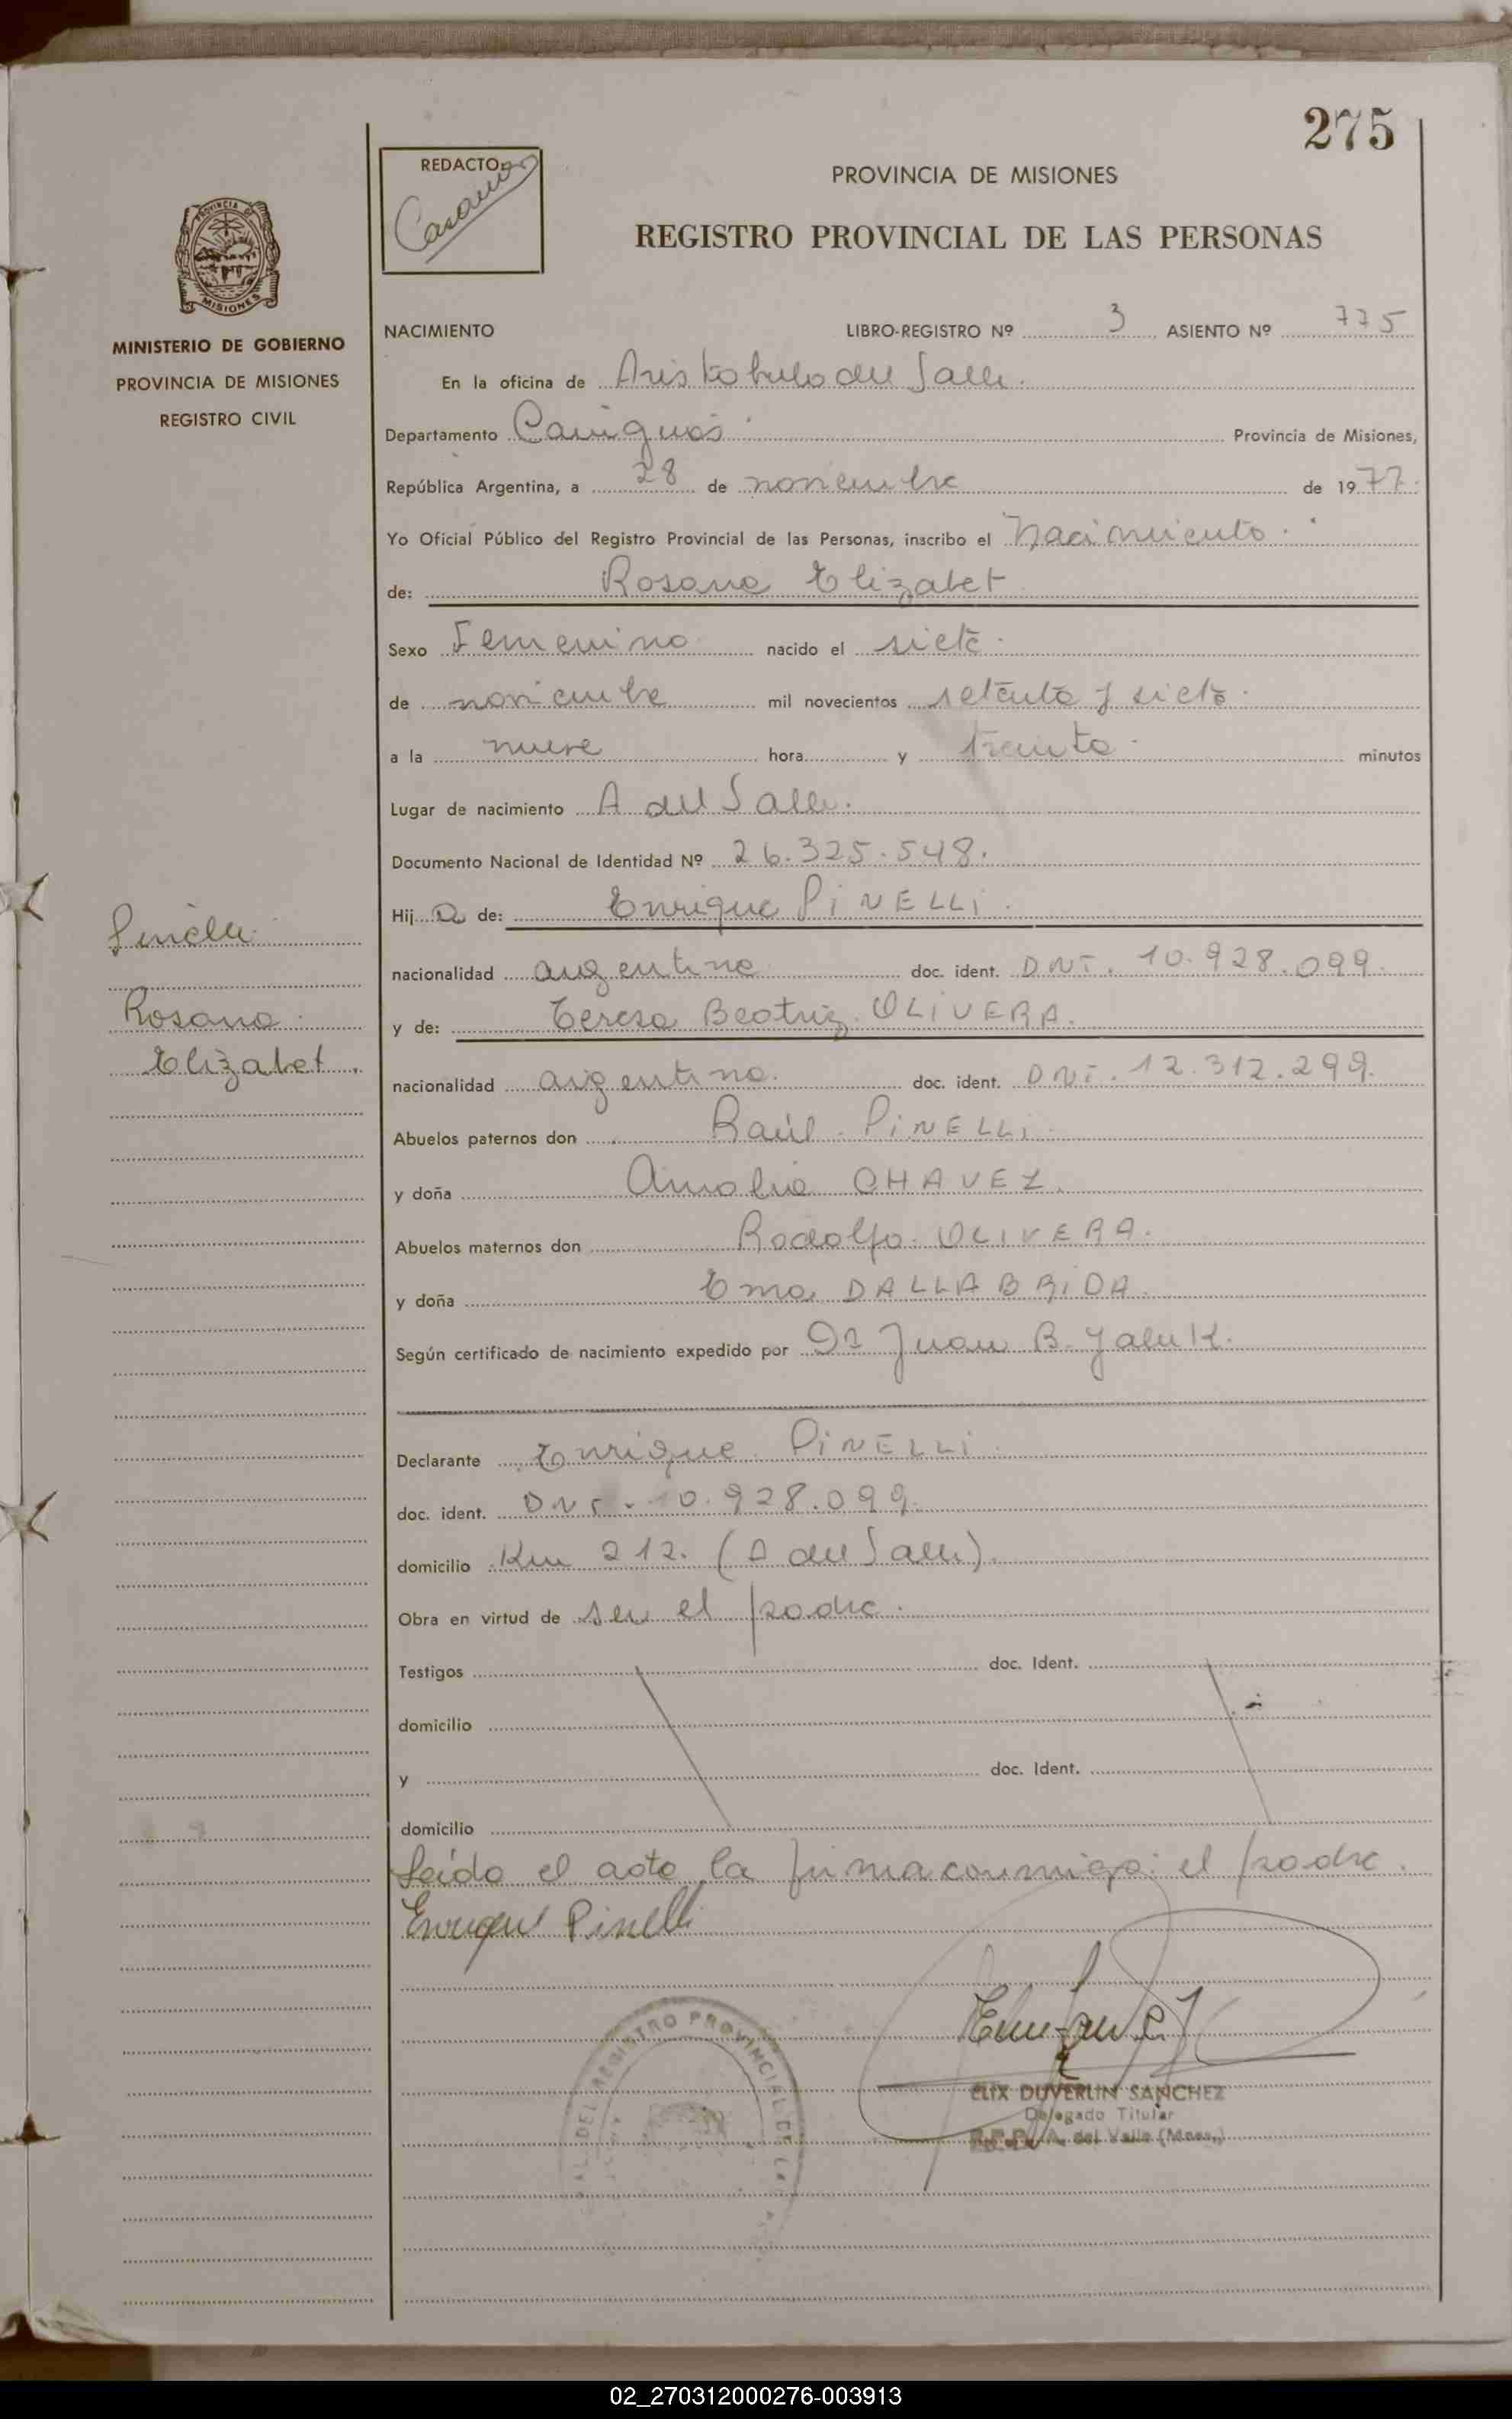 275
REDACTO
Casano
PROVINCIA DE MISIONES
REGISTRO PROVINCIAL DE LAS PERSONAS
PROVINCIA DE
MISIONES
MINISTERIO DE GOBIERNO
PROVINCIA DE MISIONES
REGISTRO CIVIL
NACIMIENTO LIBRO-REGISTRO Nº 3 ASIENTO Nº 775
En la oficina de Aristobulo del Valle.
Departamento Cainguás Provincia de Misiones,
República Argentina, a 28 de noviembre de 1977.
Yo Oficial Público del Registro Provincial de las Personas, inscribo el Nacimiento.
de: Rosana Elizabet
Sexo Femenino nacido el siete.
de noviembre mil novecientos setenta y siete.
a la nueve hora y treinta. minutos
Lugar de nacimiento A del Valle.
Documento Nacional de Identidad Nº 26.325.548.
Hij a de: Enrique PINELLI.
nacionalidad argentina doc. ident. DNI. 10.928.099.
y de: Teresa Beatriz OLIVERA.
nacionalidad argentina. doc. ident. DNI. 12.312.299.
Abuelos paternos don Raúl PINELLI.
y doña Amalia CHAVEZ.
Abuelos maternos don Rodolfo OLIVERA.
y doña Ema DALLABRIDA.
Según certificado de nacimiento expedido por Dr Juan B.
Declarante Enrique PINELLI.
doc. ident. DNI. 10.928.099.
domicilio Km 212. (A del Valle).
Obra en virtud de ser el padre.
Testigos doc. Ident.
domicilio
y doc. Ident.
domicilio
Leído el acta la firma conmigo: el padre.
Enrique Pinelli
Pinelli
Rosana
Elizabet.
REGISTRO PROVINCIAL DE LAS
ELIX DUVERLIN SANCHEZ
Delegado Titular
R.P.P. A. del Valle (Mnes.)
02_270312000276-003913